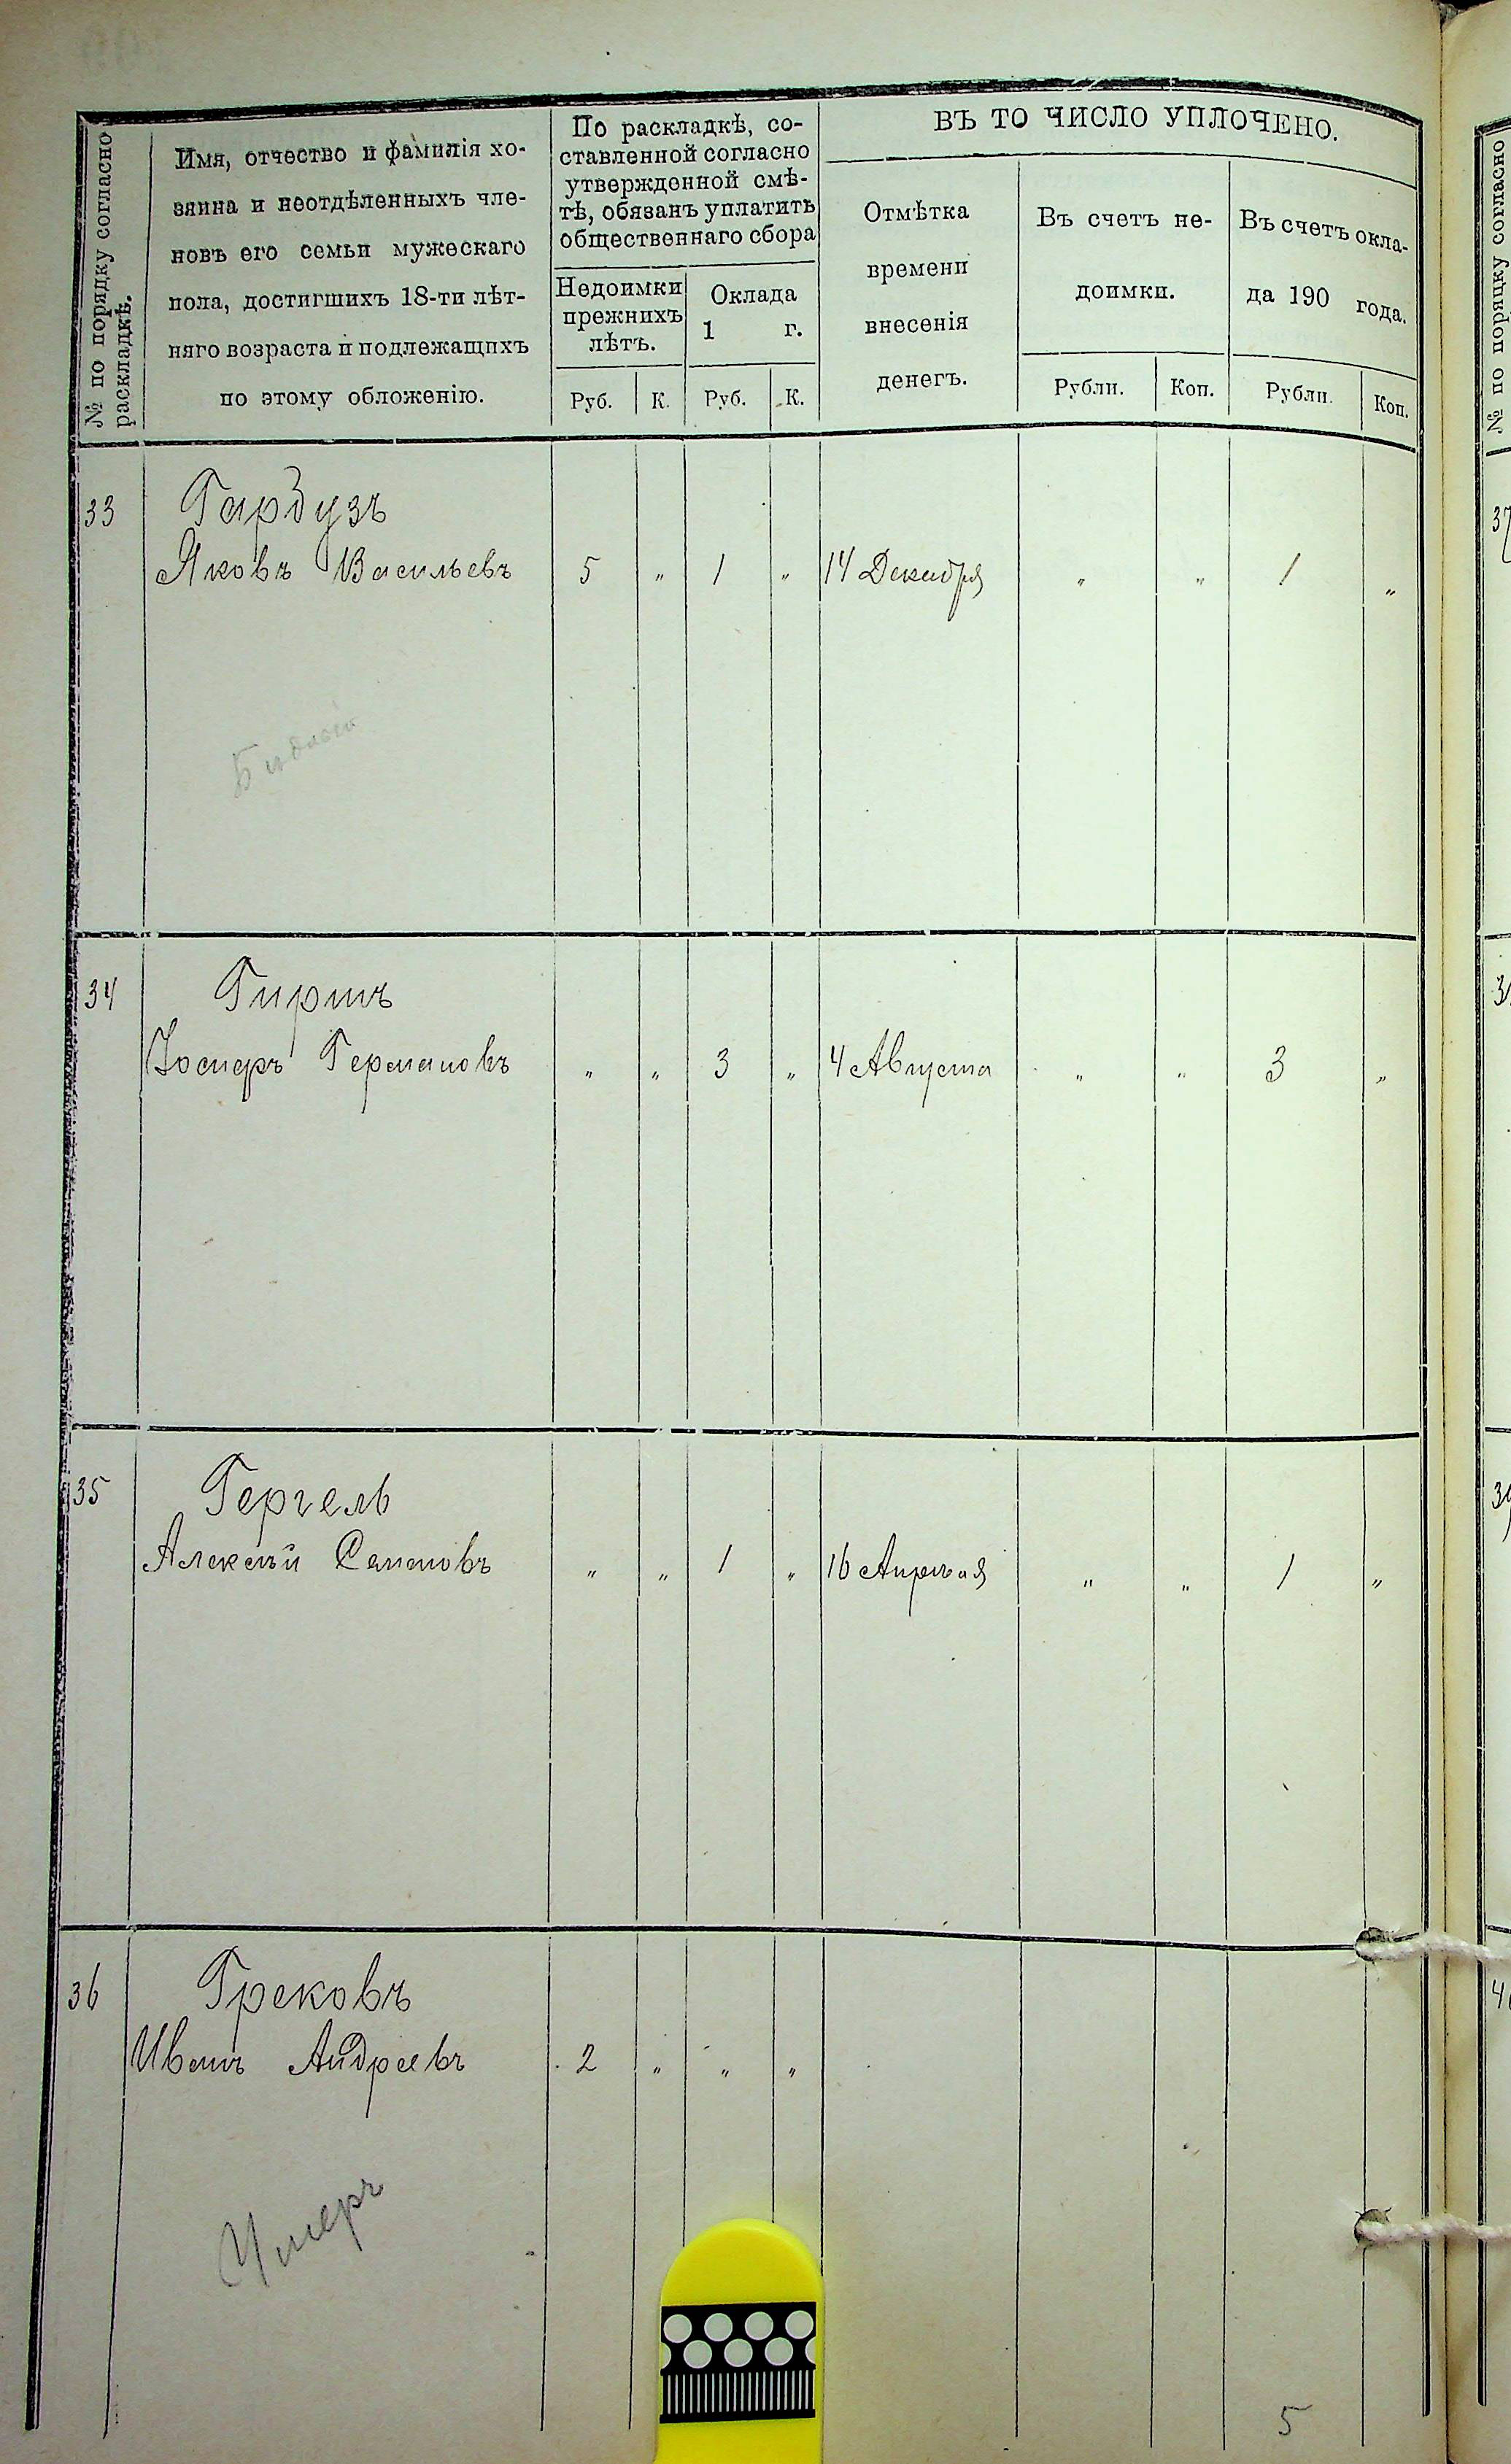 № по порядку согласно раскладкѣ.
Имя, отчество и фамилія хо-
зяина и неотдѣленныхъ чле-
новъ его семьи мужескаго
пола, достигшихъ 18-ти лѣт-
няго возраста и подлежащихъ
по этому обложенію.
По раскладкѣ, со-
ставленной согласно
утвержденной смѣ-
тѣ, обязанъ уплатить
общественнаго сбора
Недоимки
прежнихъ
лѣтъ.
Руб. К.
Оклада
1 г.
Руб. К.
ВЪ ТО ЧИСЛО УПЛОЧЕНО.
Отмѣтка
времени
внесенія
денегъ.
Въ счетъ не-
доимки.
Рубли. Коп.
Въ счетъ окла-
да 190 года.
Рубли. Коп.
33 Гардузъ
Яковъ Васильевъ 5 " 1 " 14 Декабря " " 1 "
34 Гиршъ
Іосифъ Германовъ " " 3 " 4 Августа " " 3 "
35 Гергель
Алексѣй Семеновъ " " 1 " 16 Апрѣля " " 1 "
36 Грековъ
Иванъ Андреевъ 2 " " "
Умеръ
5
№ по порядку согласно